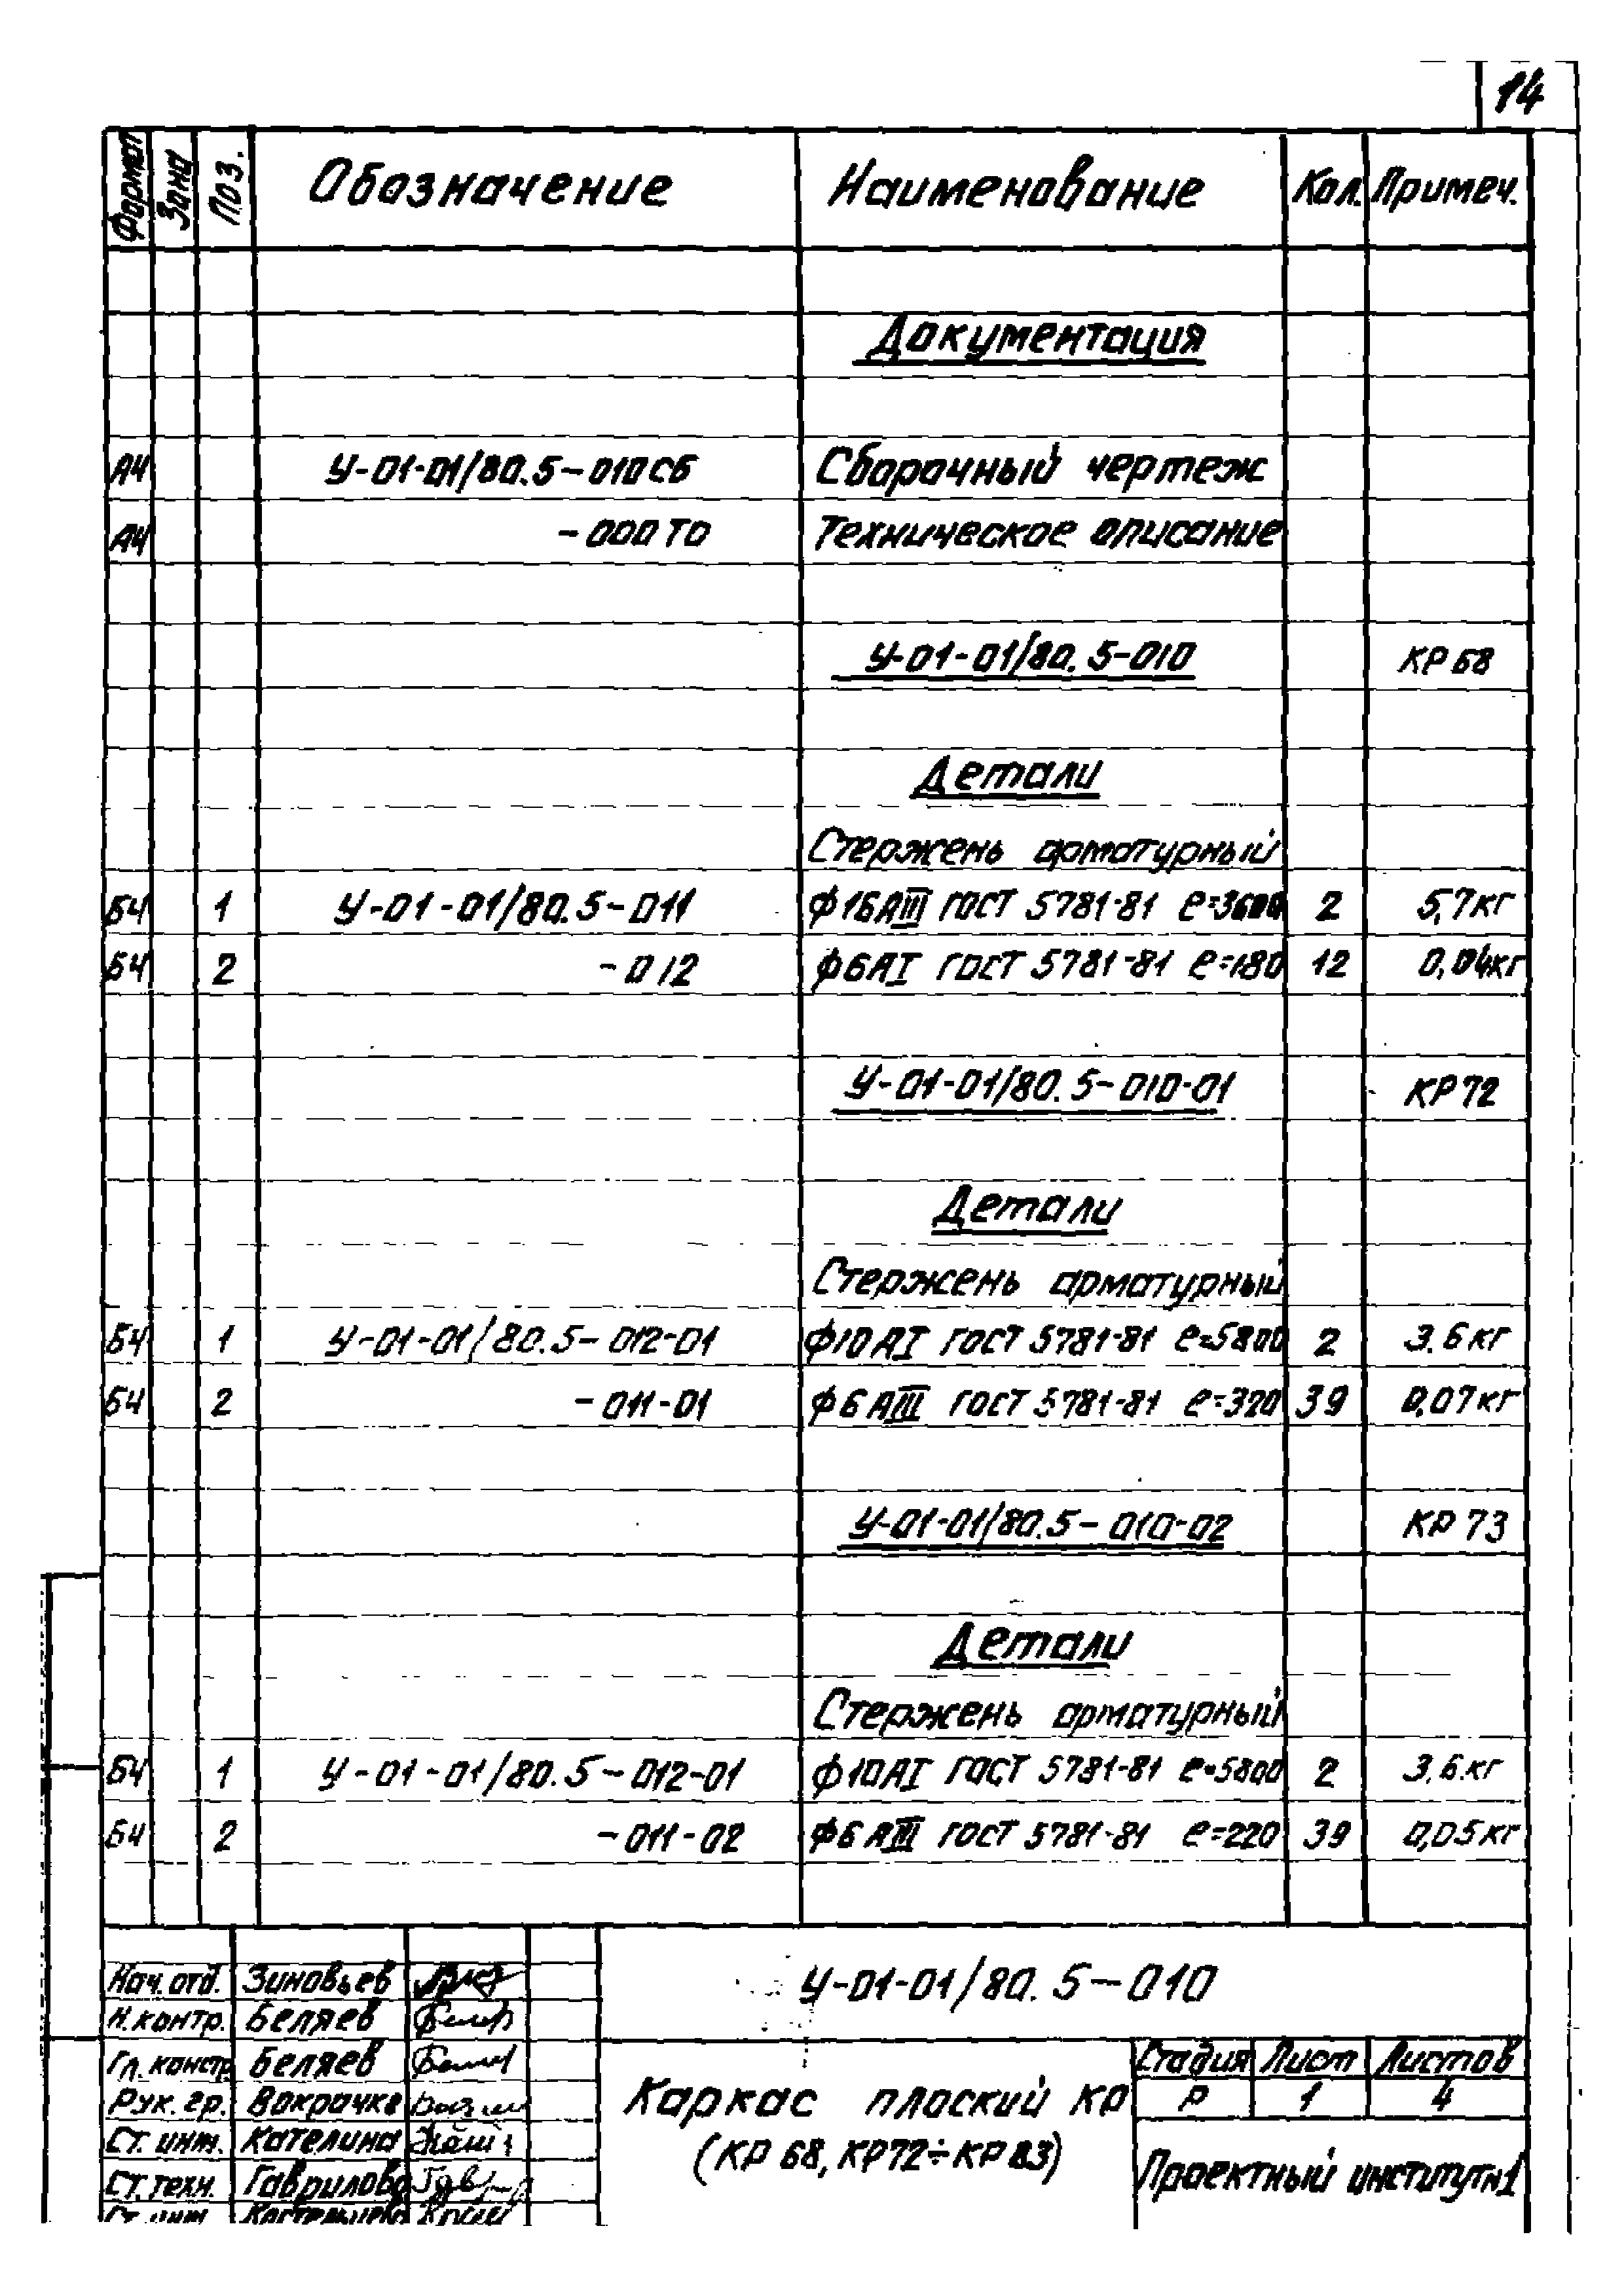 14
Формат Зона Поз. Обозначение Наименование Кол. Примеч.
Документация
А4 У-01-01/80.5-010СБ Сборочный чертеж
А4 -000ТО Техническое описание
У-01-01/80.5-010 КР68
Детали
Стержень арматурный
БЧ 1 У-01-01/80.5-011 Ф16АIII ГОСТ 5781-81 ℓ=3600 2 5,7кг
БЧ 2 -012 Ф6АI ГОСТ 5781-81 ℓ=180 12 0,04кг
У-01-01/80.5-010-01 КР72
Детали
Стержень арматурный
БЧ 1 У-01-01/80.5-012-01 Ф10АI ГОСТ 5781-81 ℓ=5800 2 3.6кг
БЧ 2 -011-01 Ф6АIII ГОСТ 5781-81 ℓ=320 39 0,07кг
У-01-01/80.5-010-02 КР 73
Детали
Стержень арматурный
БЧ 1 У-01-01/80.5-012-01 Ф10АI ГОСТ 5781-81 ℓ=5800 2 3.6.кг
БЧ 2 -011-02 Ф6АIII ГОСТ 5781-81 ℓ=220 39 0,05кг
У-01-01/80.5-010
Нач.отд. Зиновьев
Н.контр. Беляев
Гл.констр. Беляев
Рук.гр. Вокрачко
Ст.инж. Кателина
Ст.техн. Гаврилова
Ст.инж
Каркас плоский КР
(КР 68, КР72÷КР83)
Стадия Лист Листов
Р 1 4
Проектный институт№1